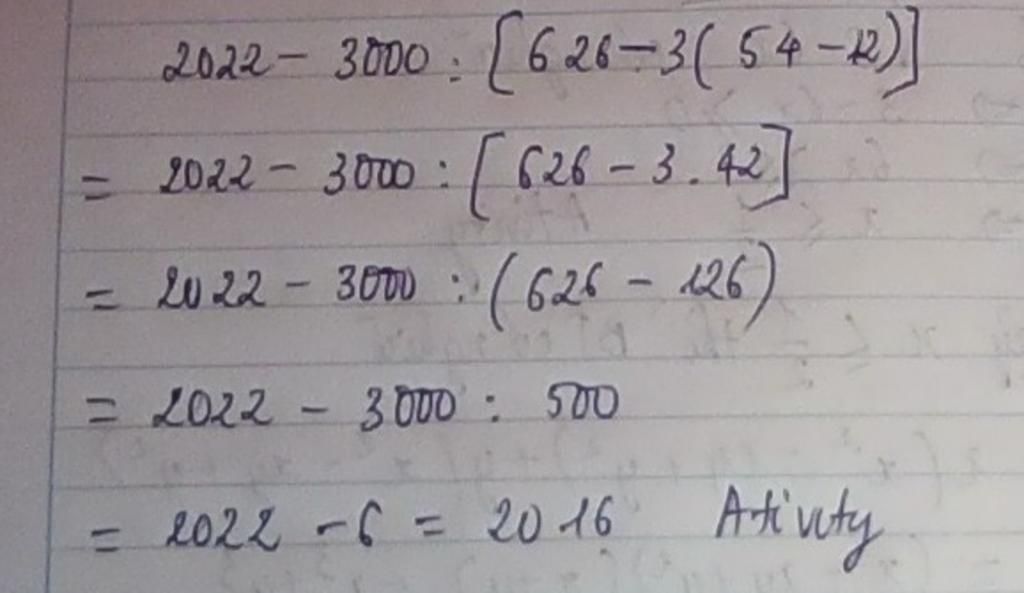 2022 - 3000 : [626 - 3(54 - 12)]
= 2022 - 3000 : [626 - 3.42]
= 2022 - 3000 : (626 - 126)
= 2022 - 3000 : 500
= 2022 - 6 = 2016 Ativity